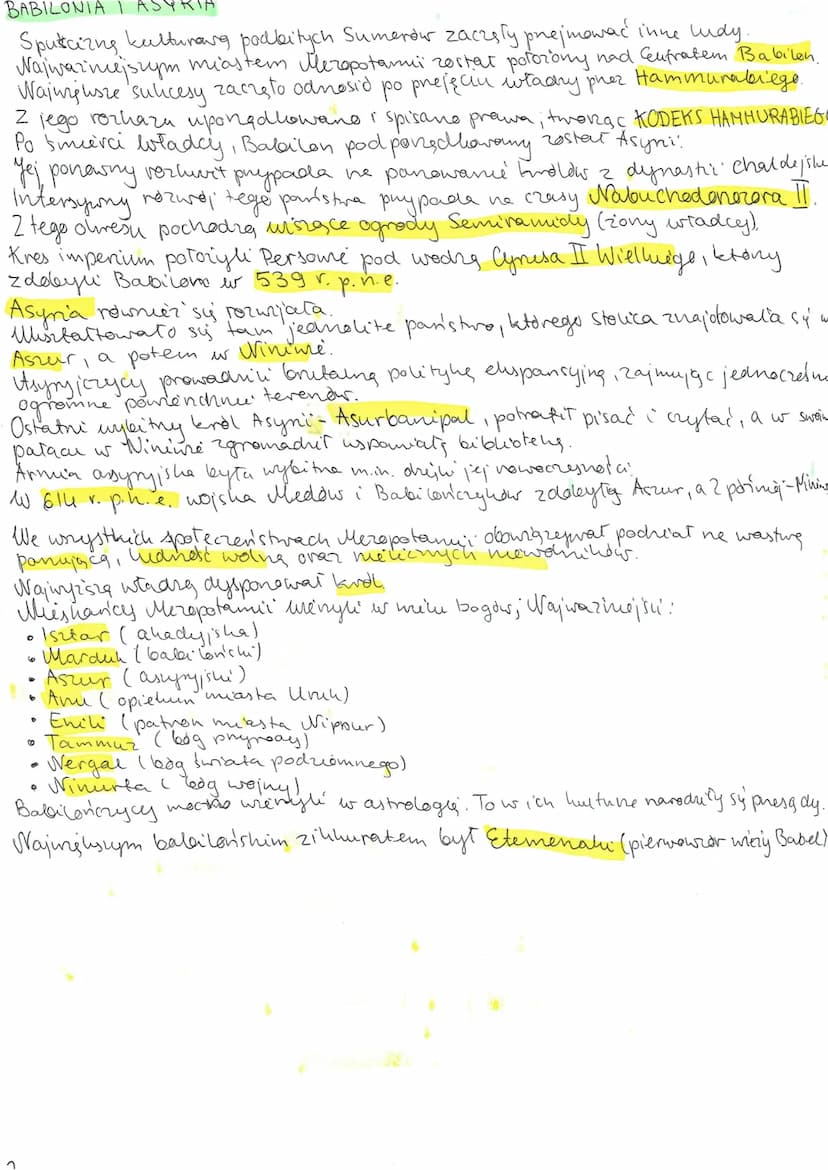 BABILONIA I ASYRIA
Spuściznę kulturową podbitych Sumerów zaczęły przejmować inne ludy.
Najważniejszym miastem Mezopotamii został położony nad Eufratem Babilon.
Największe sukcesy zaczęto odnosić po przejęciu władzy przez Hammurabiego.
Z jego rozkazu uporządkowano i spisano prawa, tworząc KODEKS HAMMURABIEG
Po śmierci władcy, Babilon podporządkowany został Asyrii.
Jej ponowny rozkwit przypada na panowanie królów z dynastii chaldejskie
Intensywny rozwój tego państwa przypada na czasy Nabuchodonozora II.
Z tego okresu pochodzą wiszące ogrody Semiramidy (żony władcy).
Kres imperium położyli Persowie pod wodzą Cyrusa II Wielkiego, który
zdobyli Babilon w 539 r. p.n.e.
Asyria również się rozwijała.
Ukształtowało się tam jednolite państwo, którego stolica znajdowała się w
Aszur, a potem w Niniwie.
Asyryjczycy prowadzili brutalną politykę ekspansyjną, zajmując jednocześnie
ogromne powierzchnie terenów.
Ostatni wybitny król Asyrii - Asurbanipal, potrafił pisać i czytać, a w swoim
pałacu w Niniwie zgromadził wspaniałą bibliotekę.
Armia assyryjska była wybitna m.in. dzięki jej nowoczesności.
W 614 r. p.n.e. wojska Medów i Babilończyków zdobyły Aszur, a 2 później - Niniw
We wszystkich społeczeństwach Mezopotamii obowiązywał podział na warstwę
panującą, ludność wolną oraz nielicznych niewolników.
Najwyższą władzą dysponował król.
Mieszkańcy Mezopotamii wierzyli w wielu bogów; Najważniejsi:
• Isztar (akadyjska)
• Marduk (babiloński)
• Aszur (asyryjski)
• Anu (opiekun miasta Uruk)
• Enlil (patron miasta Nippur)
• Tammuz (bóg przyrody)
• Nergal (bóg świata podziemnego)
• Ninurta (bóg wojny)
Babilończycy mocno wierzyli w astrologię. To w ich kulturze narodziły się przesądy.
Największym babilońskim zikkuratem był Etemenaki (pierwowzór wieży Babel)